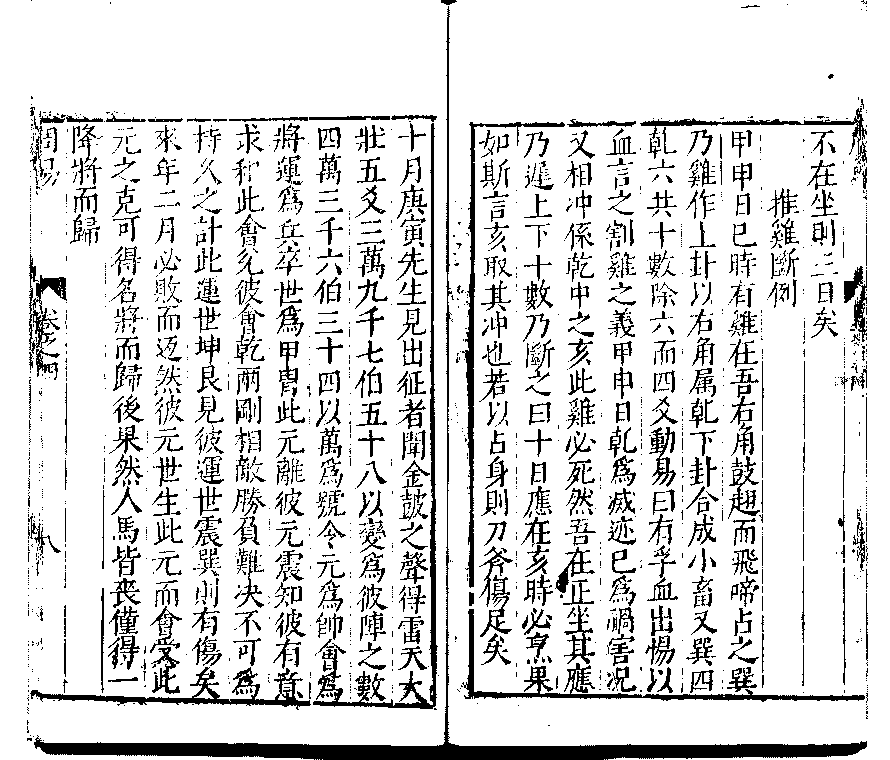 不在坐則三日矣
推雞斷例
甲申日巳時有雞在吾右角鼓翅而飛啼占之巽
乃雞作上卦以右角属乹下卦合成小畜又巽四
乹六共十數除六而四爻動易曰有孚血出惕以
血言之割雞之義甲申日乹爲戚迹巳爲禍害况
又相冲係乾中之亥此雞必死然吾在正坐其應
乃遲上下十數乃斷之曰十日應在亥時必烹果
如斯言亥取其冲也若以占身則刀斧傷足矣
十月庚寅先生見出征者聞金鼓之聲得雷天大
壯五爻三萬九千七伯五十八以變爲彼陣之數
四萬三千六伯三十四以萬爲號令元爲帥會爲
將運爲兵卒世爲甲冑此元離彼元震知彼有意
求和此會兊彼會乾兩剛相敵勝負難决不可爲
持久之計此運世坤艮見彼運世震巽則有傷矣
來年二月必敗而还然彼元世生此元而會受此
元之克可得名將而歸後果然人馬皆喪僅得一
降將而歸
周易
卷之四
八